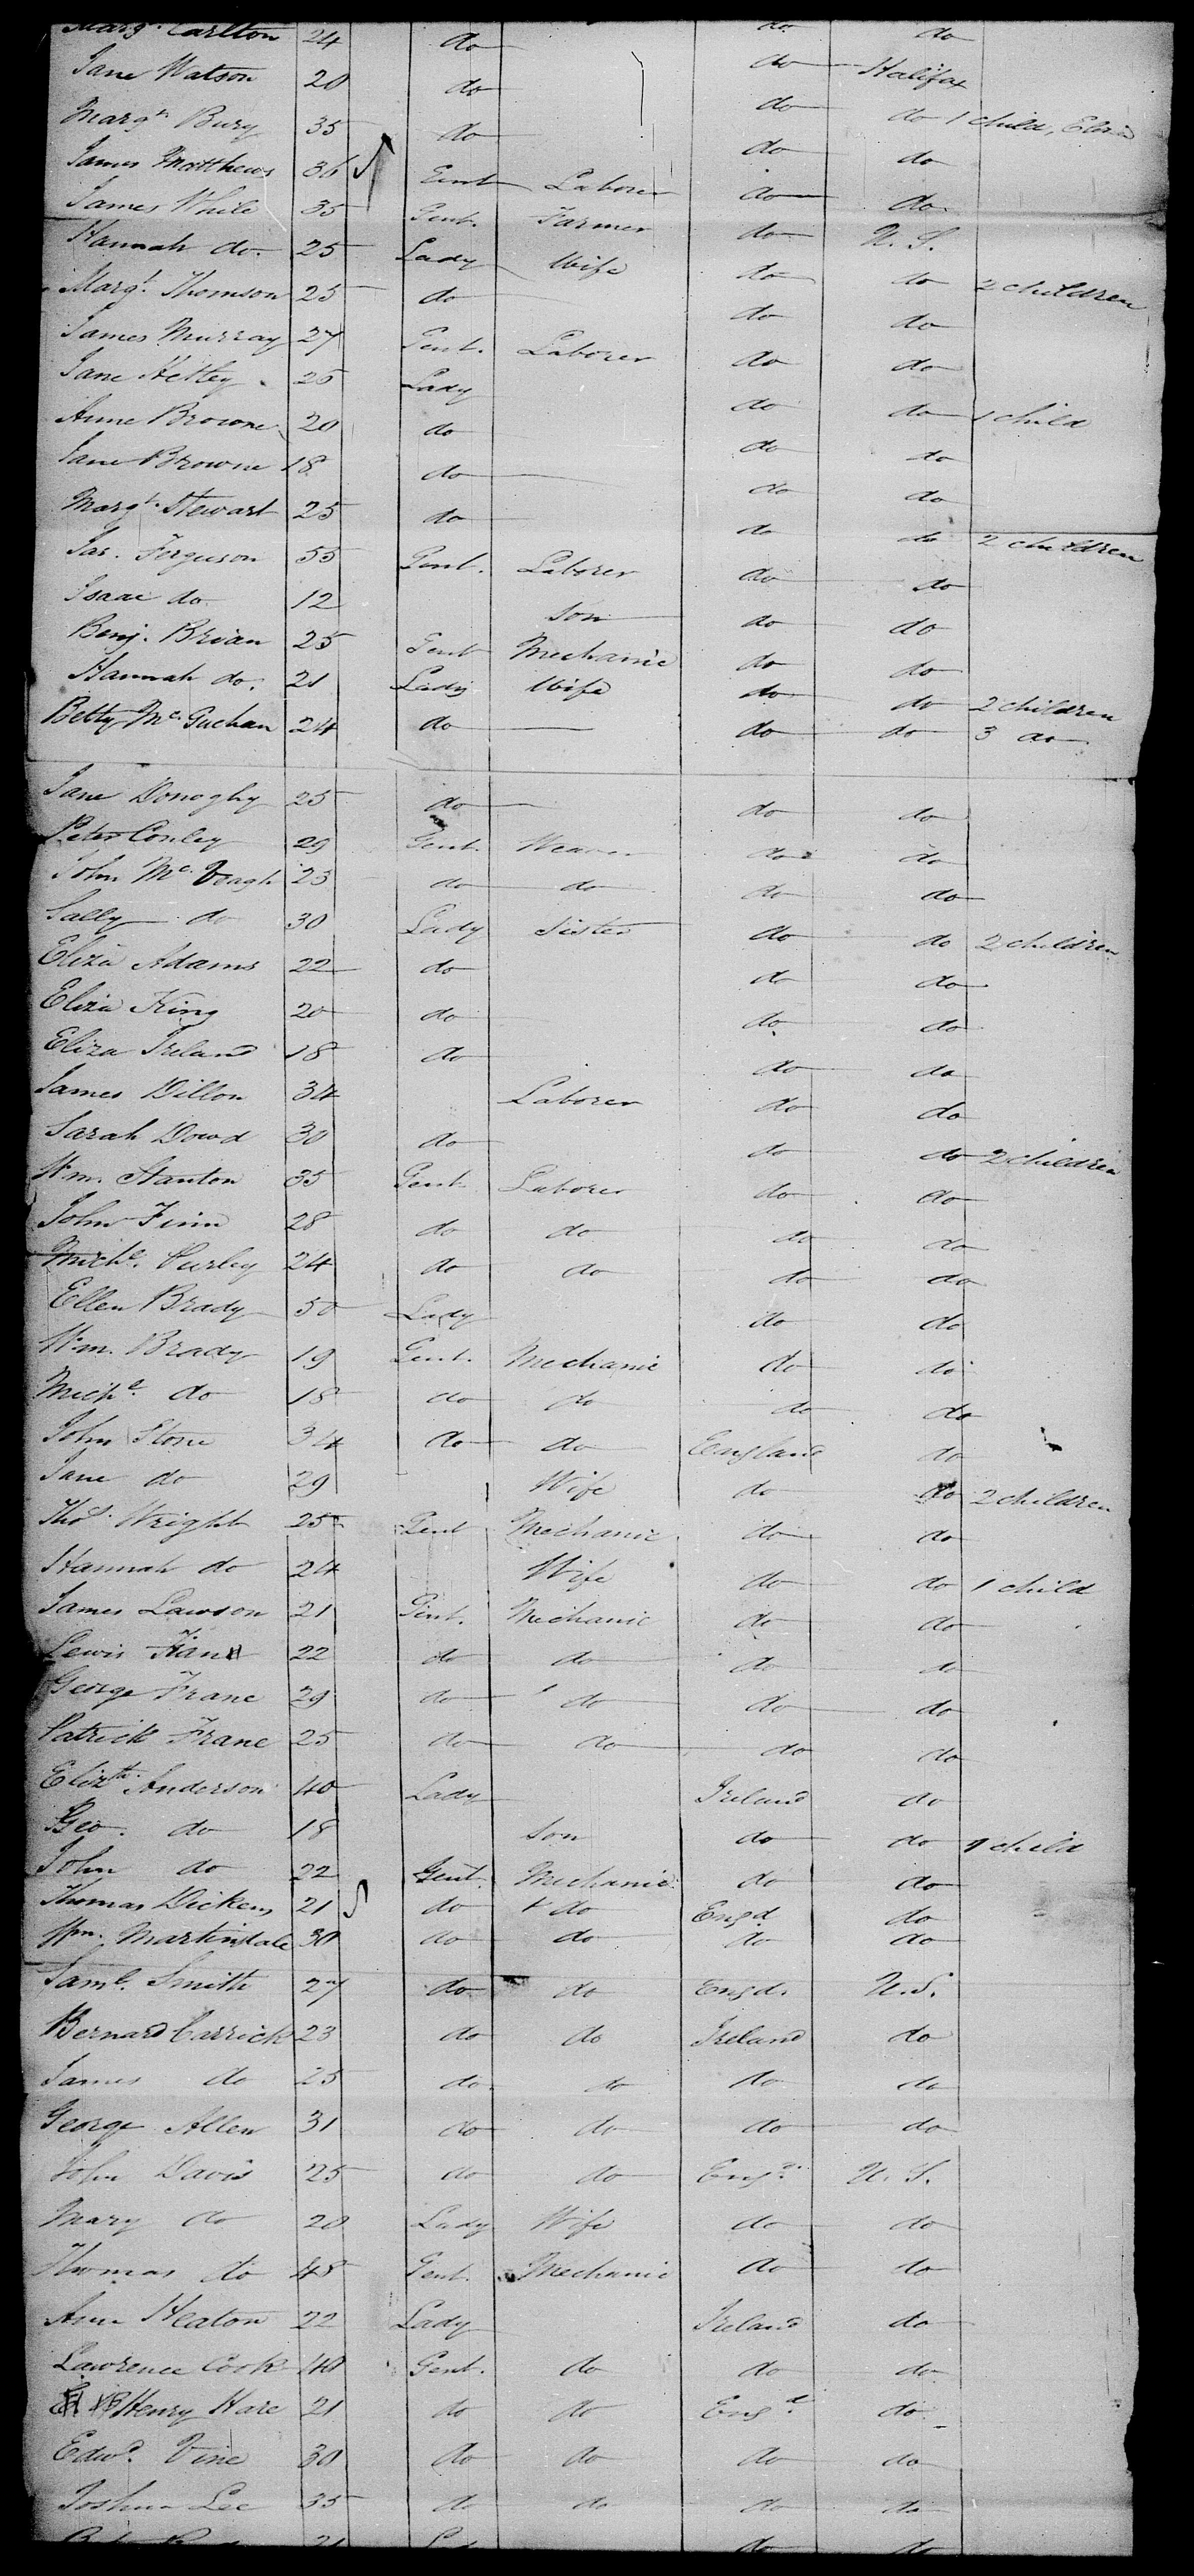 Margt. Carlton 24 do do do
Jane Watson 20 do do Halifax
Margt. Bury 35 do do do 1 child, Eliza
James Matthews 36 Gent Laborer do do
James While 35 Gent. Farmer do do
Hannah do. 25 Lady Wife do U. S.
Margt. Thomson 25 do do do 2 children
James Murray 27 Gent. Laborer do do
Jane Hetley 25 Lady do do
Anne Browne 20 do do do 1 child
Jane Browne 18 do do do
Margt. Stewart 25 do do do
Jas. Ferguson 55 Gent. Laborer do do 2 children
Isaac do 12 Son do do
Benj. Brian 25 Gent Mechanic do do
Hannah do. 21 Lady Wife do do 2 children
Betty Mc.Guchan 24 do do do 3 do
Jane Donoghy 25 do do do
Peter Conley 29 Gent. Weaver do do
John Mc.Veagh 25 do do do do
Sally do 30 Lady Sister do do 2 children
Eliza Adams 22 do do do
Eliza King 20 do do do
Eliza Ireland 18 do do do
James Dillon 34 Laborer do do
Sarah Dowd 30 do do do 2 children
Wm. Stanton 35 Gent. Laborer do do
John Finn 28 do do do do
Michl. Curley 24 do do do do
Ellen Brady 50 Lady do do
Wm. Brady 19 Gent. Mechanic do do
Michl. do 18 do do do do
John Stone 34 do do England do
Jane do 29 Wife do do 2 children
Thos. Wright 25 Gent Mechanic do do
Hannah do 24 Wife do do 1 child
James Lawson 21 Gent. Mechanic do do
Lewis 22 do do do do
George Frane 29 do do do do
Patrick Frane 25 do do do do
Elizth. Anderson 40 Lady Ireland do
Geo. do 18 Son do do 1 child
John do 22 Gent. Mechanic do do
Thomas Dickens 21 do do Engd. do
Wm. Martindale 30 do do do do
Saml. Smith 27 do do Engd. U.S.
Bernard Carrick 23 do do Ireland do
James do 25 do do do do
George Allen 31 do do do do
John Davis 25 do do Engd. U. S.
Mary do 20 Lady Wife do do
Thomas do 48 Gent. Mechanic do do
Ann Heaton 22 Lady Ireland do
Lawrence Cook 40 Gent. do do do
Henry Hare 21 do do Engd. do
Edwd. Vine 30 do do do do
Joshua Lee 35 do do do do
21 do do